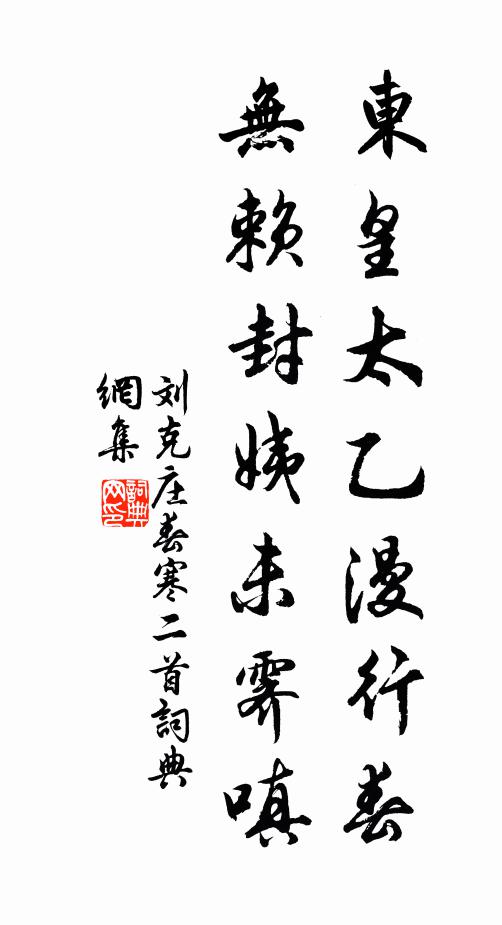 東皇太乙漫行春
無賴封姨未霽嗔
刘克庄春寒二首詞典
網集
詞典網印